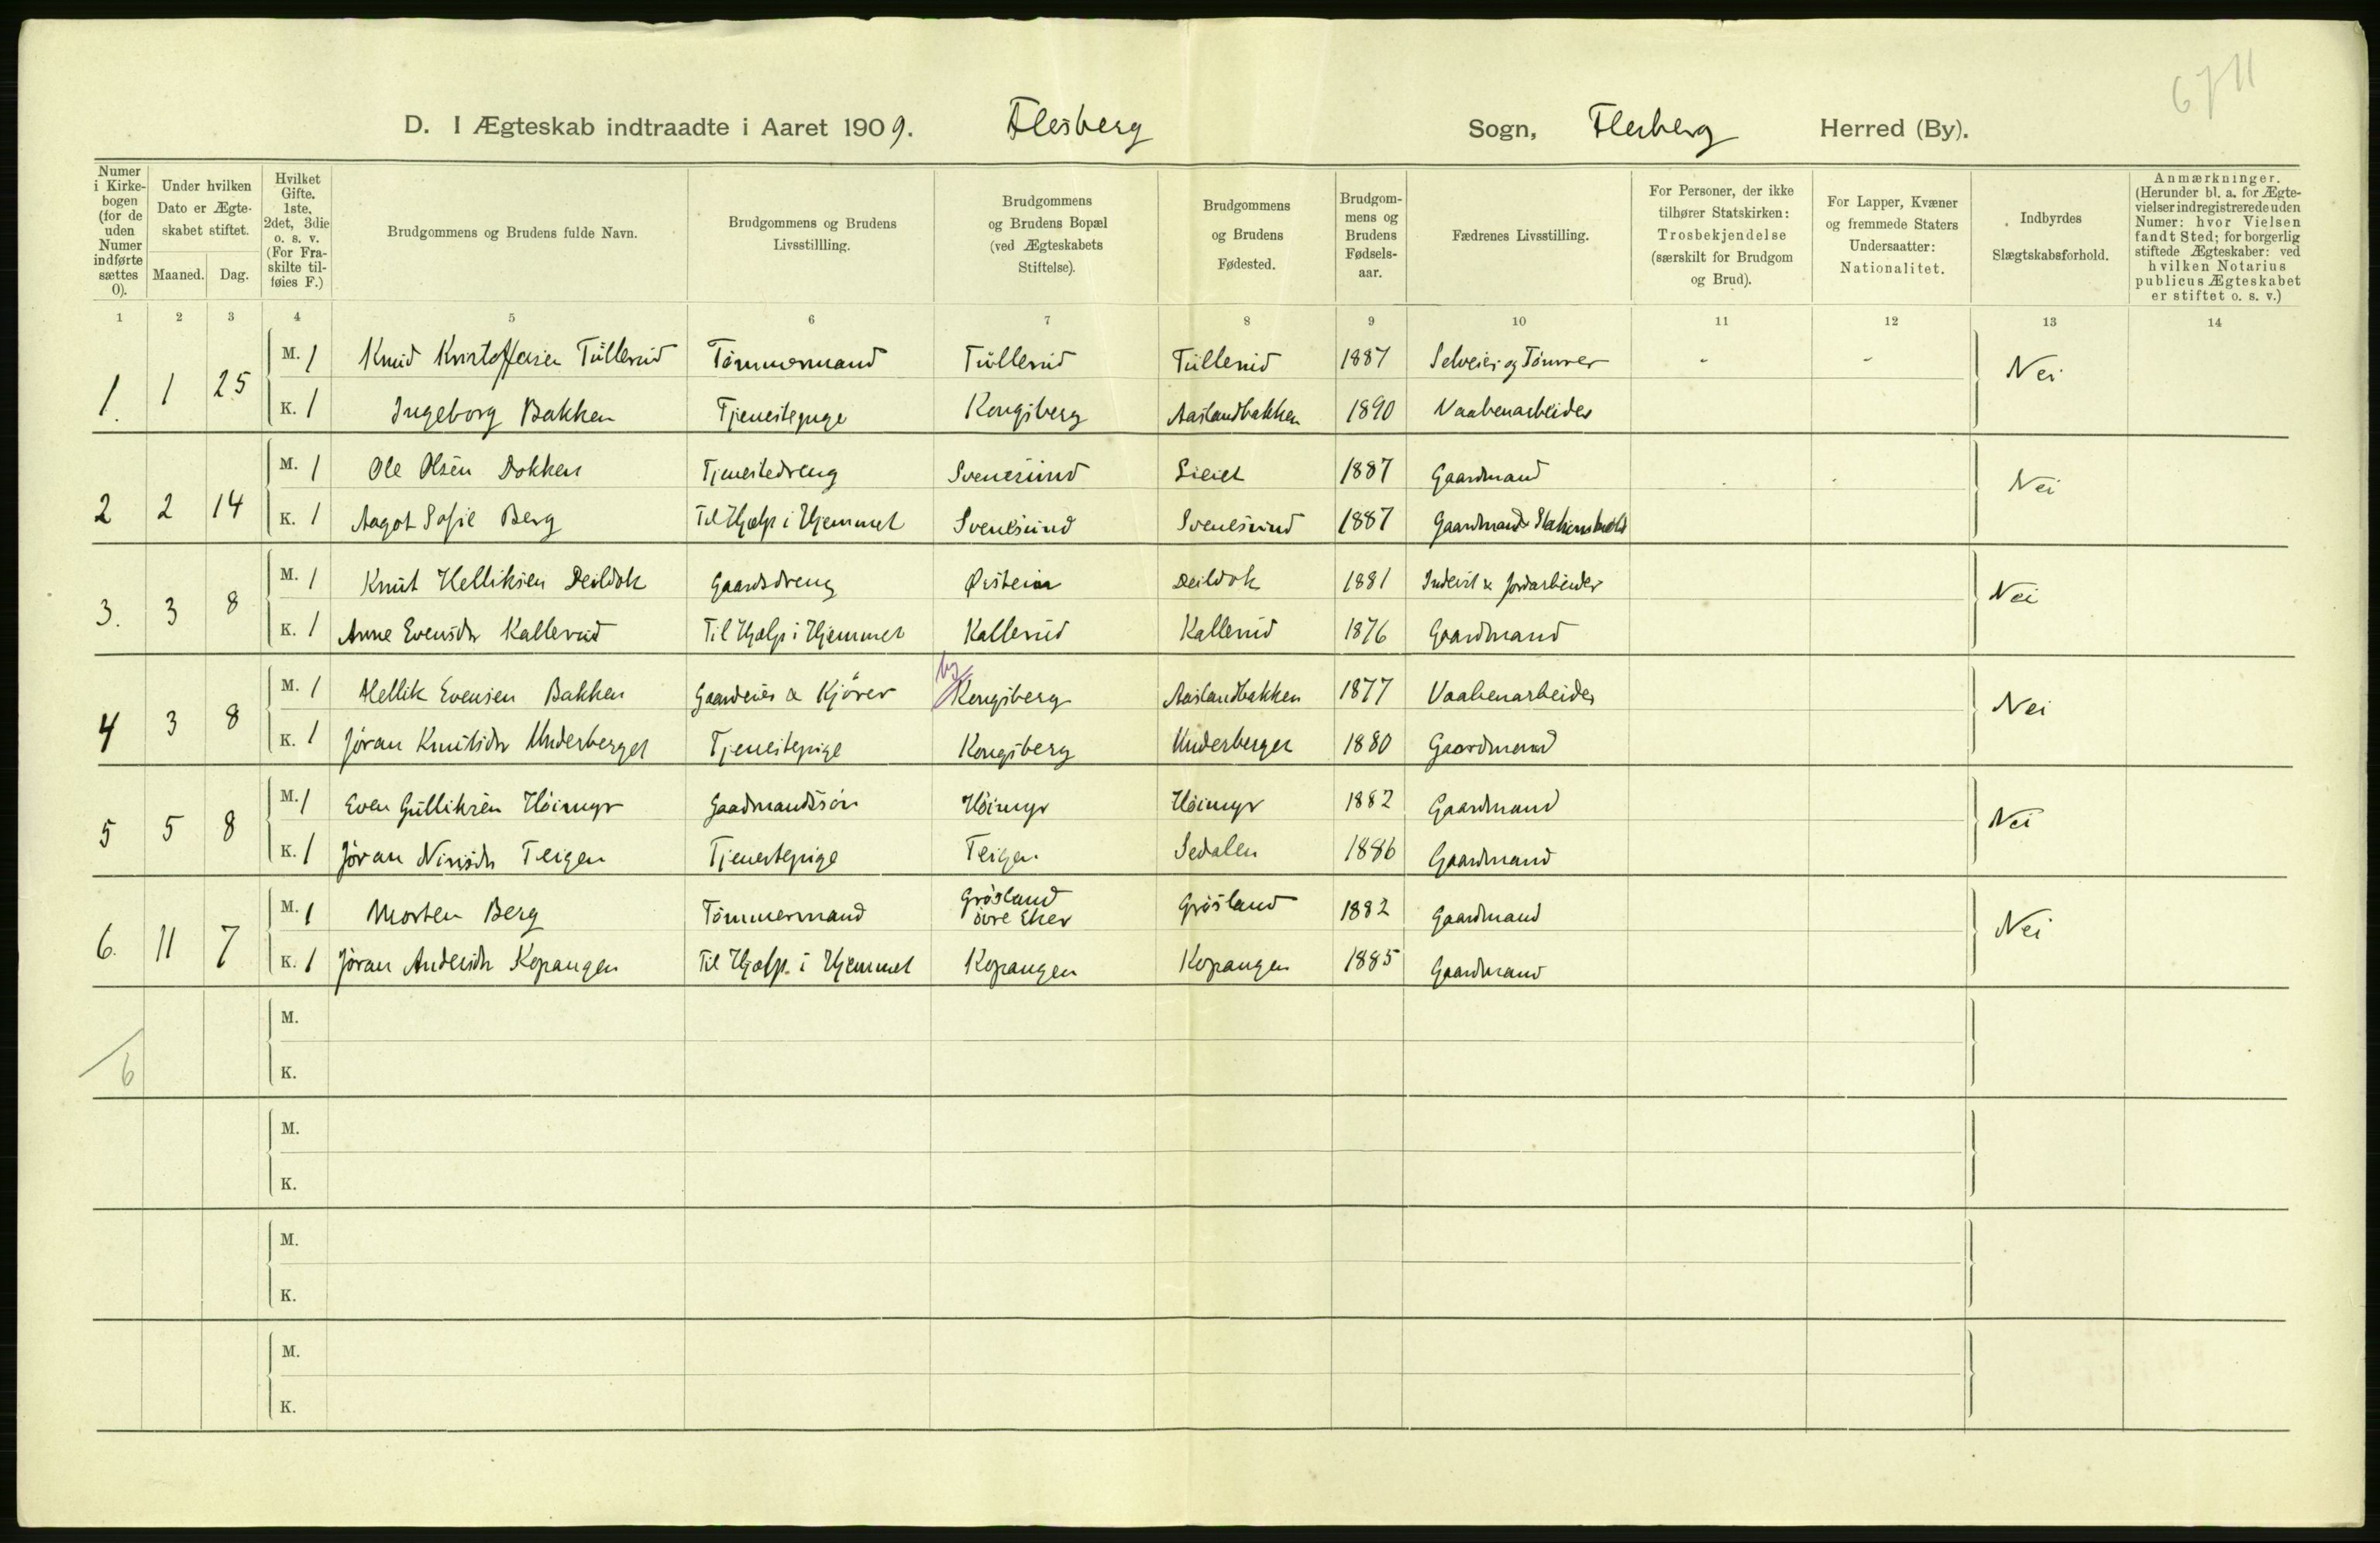 D. I Ægteskab indtraadte i Aaret 1909. Flesberg Sogn, Flesberg Herred (By).
Numer i Kirkebogen (for de uden Numer indførte sættes 0).
Under hvilken Dato er Ægteskabet stiftet.
Maaned. Dag.
Hvilket Gifte. 1ste, 2det, 3die o. s. v. (For Fraskilte tilføies F.)
Brudgommens og Brudens fulde Navn.
Brudgommens og Brudens Livsstillling.
Brudgommens og Brudens Bopæl (ved Ægteskabets Stiftelse).
Brudgommens og Brudens Fødested.
Brudgommens og Brudens Fødselsaar.
Fædrenes Livsstilling.
For Personer, der ikke tilhører Statskirken: Trosbekjendelse (særskilt for Brudgom og Brud).
For Lapper, Kvæner og fremmede Staters Undersaatter: Nationalitet.
Indbyrdes Slægtskabsforhold.
Anmærkninger. (Herunder bl. a. for Ægtevielser indregistrerede uden Numer: hvor Vielsen fandt Sted; for borgerlig stiftede Ægteskaber: ved hvilken Notarius publicus Ægteskabet er stiftet o. s. v.)
1 2 3 4 5 6 7 8 9 10 11 12 13 14
1. 1 25 M. 1 Knud Kristoffersen Tüllerud Tømmermand Tüllerud Tüllerud 1887 Selveier og Tømrer - - Nei
K. 1 Ingeborg Bakken Tjenestepige Kongsberg Aaslandbakken 1890 Vaabenarbeider
2 2 14 M. 1 Ole Olsen Dokken Tjenestedreng Svenesund 1887 Gaardmand Nei
K. 1 Aagot Sofie Berg Til Hjælp i Hjemmet Svenesund Svenesund 1887 Gaardmand
3. 3 8 M. 1 Knut Helliksen Deildok Gaardsdreng Deildok 1881 Inderst & Jordarbeider Nei
K. 1 Anne Evensdr Kallerud Til Hjælp i Hjemmet Kallerud Kallerud 1876 Gaardmand
4 3 8 M. 1 Hellik Evensen Bakken Gaardeier & Kjører by Kongsberg Aaslandbakken 1877 Vaabenarbeider Nei
K. 1 Jøran Knutsdr Underberget Tjenestepige Kongsberg Underberget 1880 Gaardmand
5 5 8 M. 1 Even Gulliksen Høimyr Gaadmandssøn Høimyr Høimyr 1882 Gaardmand Nei
K. 1 Jøran Nirisdr Teigen Tjenestepige Teigen Sedalen 1886 Gaardmand
6. 11 7 M. 1 Morten Berg Tømmermand Grøsland øvre Eker Grøsland 1882 Gaardmand Nei
K. 1 Jøran Andersdr Kopangen Til Hjælp i Hjemmet Kopangen Kopangen 1885 Gaardmand
M.
6
K.
M.
K.
M.
K.
M.
K.